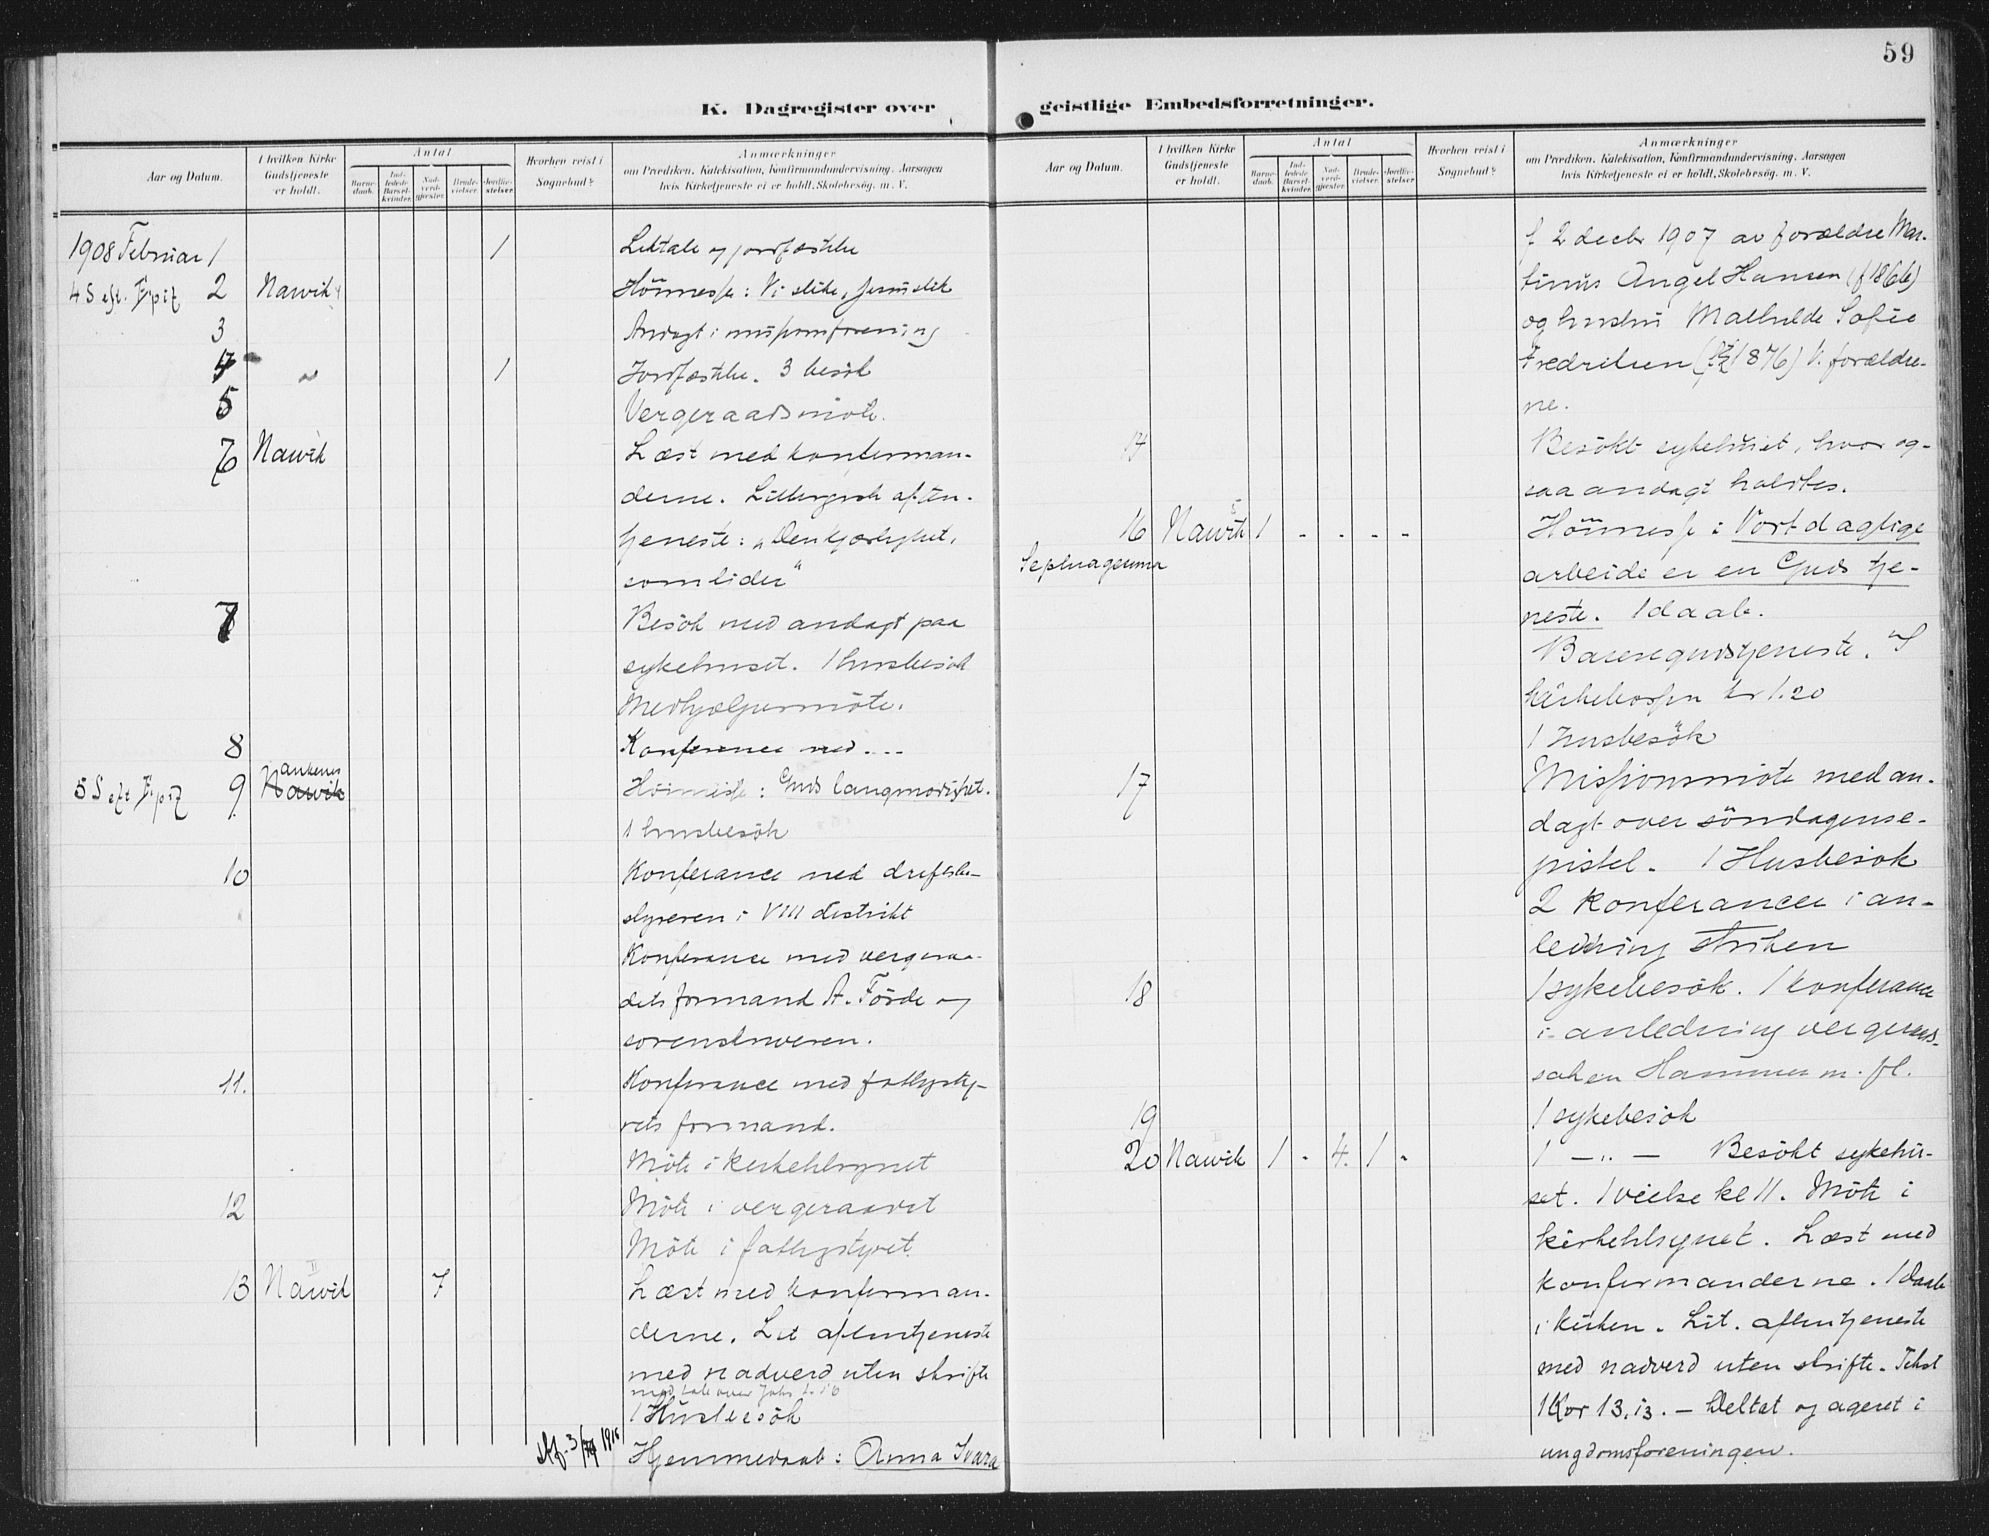 59
K. Dagregister over
geistlige Embedsforretninger.
Aar og Datum.
I hvilken Kirke
Gudstjeneste
er holdt.
Antal
Barne-
daab.
Ind-
ledede
Barsel-
kvinder.
Nad-
verd-
gjæster.
Brude-
vielser.
Jordfæ-
stelser.
Hvorhen reist i
Sognebud?
Anmærkninger
om Prædiken, Katekisation, Konfirmandundervisning, Aarsagen
hvis Kirketjeneste ei er holdt, Skolebesøg, m. V.
1908 Februar 1 1 Liktale og jordfæstelse
4 S eft. Epif 2 Narvik Höimesse: Vi slike, Jesus slik
3 Andagt i missionsforening
4 " 1 Jordfæstelse. 3 besök
5 Vergeraadsmöte.
6 Narvik Læst med konfirman-
derne. Liturgisk aften-
tjeneste: "Den kjærlighet,
som lider"
7 Besök med andagt paa
sykehuset. 1 husbesök
Medhjælpermöte.
8 Konferance med ...
5 S eft Epif 9. Narvik ankenes Höimesse: Guds langmodighet.
1 husbesök
10 Konferance med driftsbe-
styreren i VIII distrikt
Konferance med vergeraa-
dets formand A. Förde og
sorenskriveren.
11. Konferance med fattigsty-
rets formand.
Möte i kirketilsynet
12 Möte i vergeraadet
Möte i fattigstyret
13 Narvik II 7 Læst med konfirman-
derne. Lit aftentjeneste
med nadverd uten skrifte
med tale over Joh
1 Husbesök
1916 Hjemmedaab: Anna Ivara
Aar og Datum.
I hvilken Kirke
Gudstjeneste
er holdt.
Antal
Barne-
daab.
Ind-
ledede
Barsel-
kvinder.
Nad-
verd-
gjæster.
Brude-
vielser.
Jordfæ-
stelser.
Hvorhen reist i
Sognebud?
Anmærkninger
om Prædiken, Katekisation, Konfirmandundervisning, Aarsagen
hvis Kirketjeneste ei er holdt, Skolebesøg, m. V.
f 2 decbr 1907 av forældre Mar-
tinus Angel Hansen (f 1866)
og hustru Mathilde Sofie
Fredriksen (1876) V: forældre-
ne.
14 Besökt sykehuset, hvor og-
saa andagt holdtes.
16 Narvik 1 - - - - Höimesse: Vort daglige
Septuagesima arbeide er en Guds tje-
neste. 1 daab.
Barnegudstjeneste. I
kirkebössen kr 1.20
1 husbesök
17 Missionsmöte med an-
dagt over söndagense-
pistel. 1 Husbesök
2 konferancer i an-
ledning striken
18 1 sykebesök. 1 konferance
i anledning vergeraads-
saken Hammer m. fl.
19 1 sykebesök
20 Narvik II 1 - 4 1 - 1 — " — Besökt sykehu-
set. 1 vielse kl 11. Möte i
kirketilsynet. Læst med
konfirmanderne. 1 daab
i kirken. Lit. aftentjeneste
med nadverd uten skrifte. Tekst
1 Kor 13.13. — Deltat og ageret i
ungdomsforeningen.